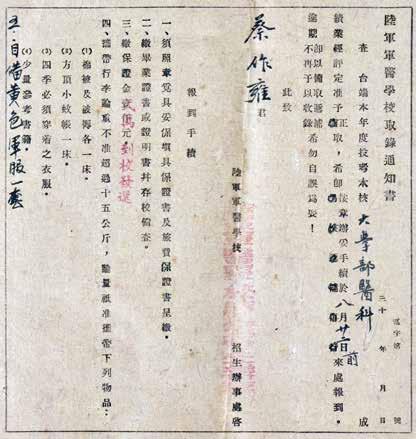 陸軍軍醫學校取錄通知書
字第 號
三十 年 月 日 成
查 台端本年度投考本校大學部醫科
績業經評定准予正取,希即按章辦妥手續於八月廿二日前來處報到。
逾期不再予以收錄希勿自誤為要!
此致
蔡作雍君
陸軍軍醫學校 招生辦事處啓
報到手續
一、須照章覓具妥保填具保證書及旅費保證書呈繳。
二、繳畢業證書或證明書并存校備查。
三、繳保證金 萬元 到校發還
四、攜帶行李 重不准超過十五公斤,騐量祇准攜帶下列物品:
(1)棉被及被褥各一床。
(2)方頂小蚊帳一床。
(3)四季必須穿着之衣服。
(4)少量參考書籍
五、自備黃色軍服一套